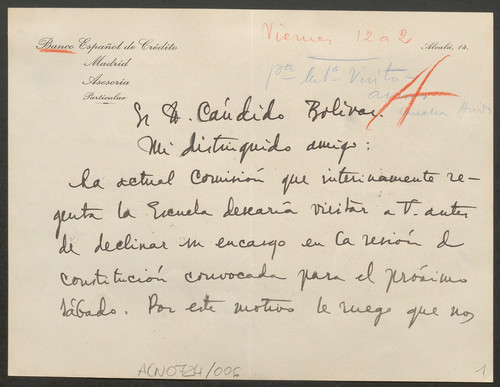 Banco Español de Crédito
Madrid
Asesoría
Particular
Alcalá, 14.
Viernes 12 a 2
pra la 1ª Visita
4
Sr D. Cándido Bolívar.
Mi distinguido amigo:
La actual Comisión que interinamente re-
genta la Escuela desearía visitar a V. antes
de declinar su encargo en la sesión d
constitución convocada para el próximo
sábado. Por este motivo le ruego que nos
ACN0724/006
1